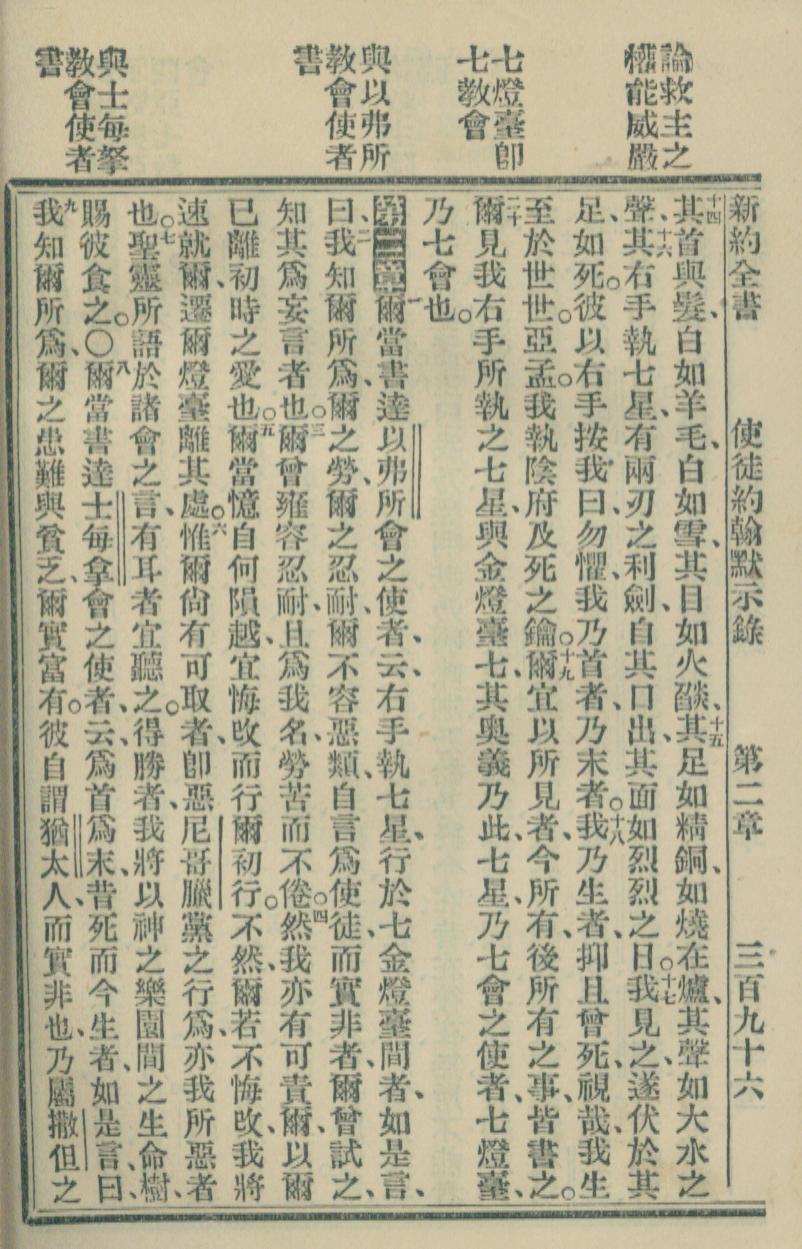 論救主之
權能威嚴
七燈臺卽
七教會
與以弗所
教會使者
書
與士每拏
教會使者
書
新約全書 使徒約翰默示錄 第二章 三百九十六
十四其首與髮、白如羊毛、白如雪、其目如火燄、十五其足如精銅、如燒在爐、其聲如大水之
聲、十六其右手執七星、有兩刃之利劍、自其口出、其面如烈烈之日。十七我見之、遂伏於其
足、如死。彼以右手按我曰、勿懼、我乃首者、乃末者。十八我乃生者、抑且曾死、視哉、我生
至於世世。亞孟。我執陰府及死之鑰。十九爾宜以所見者、今所有、後所有之事、皆書之。
二十爾見我右手所執之七星、與金燈臺七、其奧義乃此、七星、乃七會之使者、七燈臺、
乃七會也。
第二章一爾當書達以弗所會之使者、云、右手執七星、行於七金燈臺間者、如是言、
曰、二我知爾所爲、爾之勞、爾之忍耐、爾不容惡類、自言爲使徒、而實非者、爾曾試之、
知其爲妄言者也。三爾曾雍容忍耐、且爲我名、勞苦而不倦。四然我亦有可責爾、以爾
已離初時之愛也。五爾當憶自何隕越、宜悔改而行爾初行。不然、爾若不悔改、我將
速就爾、遷爾燈臺離其處。六惟爾尙有可取者、卽惡尼哥臘黨之行爲、亦我所惡者
也。七聖靈所語於諸會之言、有耳者宜聽之。得勝者、我將以神之樂園間之生命樹、
賜彼食之。○八爾當書達士每拿會之使者、云、爲首爲末、昔死而今生者、如是言、曰、
九我知爾所爲、爾之患難與貧乏、爾實富有。彼自謂猶太人、而實非也、乃屬撒但之